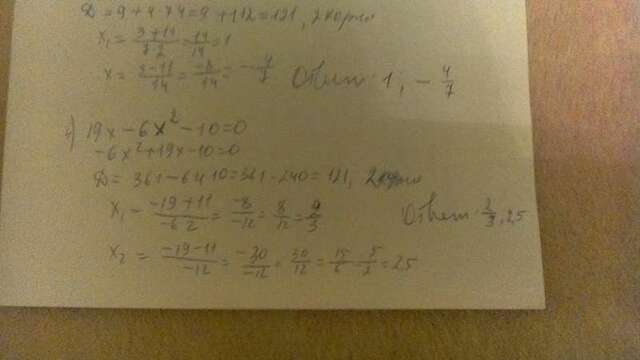 D = 9 + 4·7·4 = 9 + 112 = 121, 2 корня
x₁ = (3+11)/(7·2) = 14/14 = 1
x = (3-11)/14 = -8/14 = -4/7 Ответ: 1, -4/7
19x - 6x² - 10 = 0
-6x² + 19x - 10 = 0
D = 361 - 6·4·10 = 361 - 240 = 121, 2 корня
x₁ = (-19+11)/(-6·2) = -8/-12 = 8/12 = 2/3 Ответ: 2/3, 2,5
x₂ = (-19-11)/(-12) = -30/-12 = 30/12 = 15/6 = 5/2 = 2,5